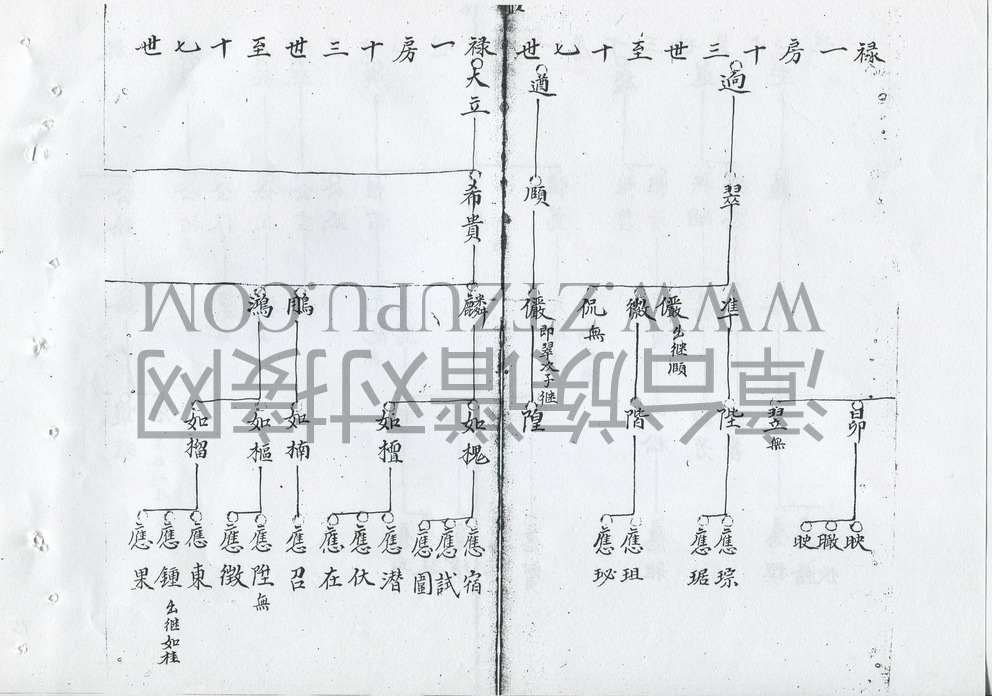 禄一房十三世至十七世
過
翠
准
儼
出继願
微
侃
無
昴
翌
無
陛
階
映
職
映
應琮
應琚
應珇
應珌
遒
願
儼
即翠次子继
隍
禄一房十三世至十七世
大立
希貴
麟
鵰
鴻
如槐
如檀
如楠
如樞
如榴
應宿
應試
應圖
應潜
應伏
應在
應召
應陞
無
應徵
應東
應鍾
出继如桂
應果
WWW.ZIZUPU.COM
漳台族谱对接网